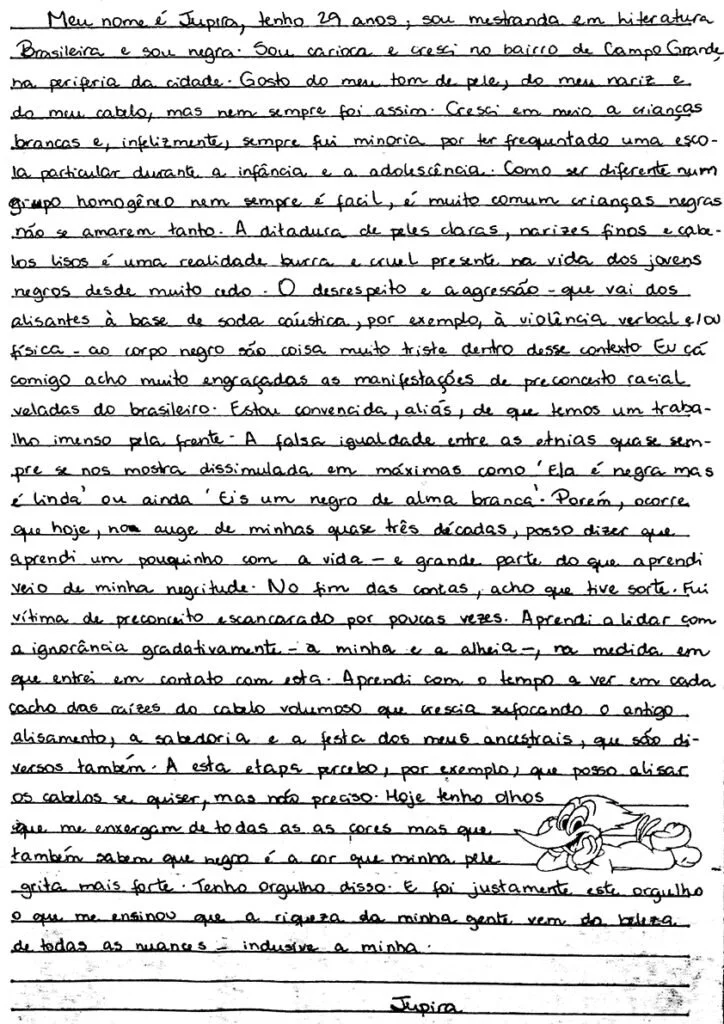 Meu nome é Jupira, tenho 29 anos, sou mestranda em Literatura
Brasileira e sou negra. Sou carioca e cresci no bairro de Campo Grande,
na periferia da cidade. Gosto do meu tom de pele, do meu nariz e
do meu cabelo, mas nem sempre foi assim. Cresci em meio a crianças
brancas e, infelizmente, sempre fui minoria por ter frequentado uma esco-
la particular durante a infância e a adolescência. Como ser diferente num
grupo homogêneo nem sempre é facil, é muito comum crianças negras
não se amarem tanto. A ditadura de peles claras, narizes finos e cabe-
los lisos é uma realidade burra e cruel presente na vida dos jovens
negros desde muito cedo. O desrespeito e a agressão - que vai dos
alisantes à base de soda cáustica, por exemplo, à violência verbal e/ou
física - ao corpo negro são coisa muito triste dentro desse contexto. Eu cá
comigo acho muito engraçadas as manifestações de preconceito racial
veladas do brasileiro. Estou convencida, aliás, de que temos um traba-
lho imenso pela frente. A falsa igualdade entre as etnias quase sem-
pre se nos mostra dissimulada em máximas como 'Ela é negra mas
é linda' ou ainda 'Eis um negro de alma branca'. Porém, ocorre
que hoje, no auge de minhas quase três décadas, posso dizer que
aprendi um pouquinho com a vida - e grande parte do que aprendi
veio de minha negritude. No fim das contas, acho que tive sorte. Fui
vítima de preconceito escancarado por poucas vezes. Aprendi a lidar com
a ignorância gradativamente - a minha e a alheia -, na medida em
que entrei em contato com esta. Aprendi com o tempo a ver em cada
cacho das raízes do cabelo volumoso que crescia sufocando o antigo
alisamento, a sabedoria e a festa dos meus ancestrais, que são di-
versos também. A esta etapa percebo, por exemplo, que posso alisar
os cabelos se quiser, mas não preciso. Hoje tenho olhos
que me enxergam de todas as as cores mas que
também sabem que negro é a cor que minha pele
grita mais forte. Tenho orgulho disso. E foi justamente este orgulho
o que me ensinou que a riqueza da minha gente vem da beleza
de todas as nuances - inclusive a minha.
Jupira